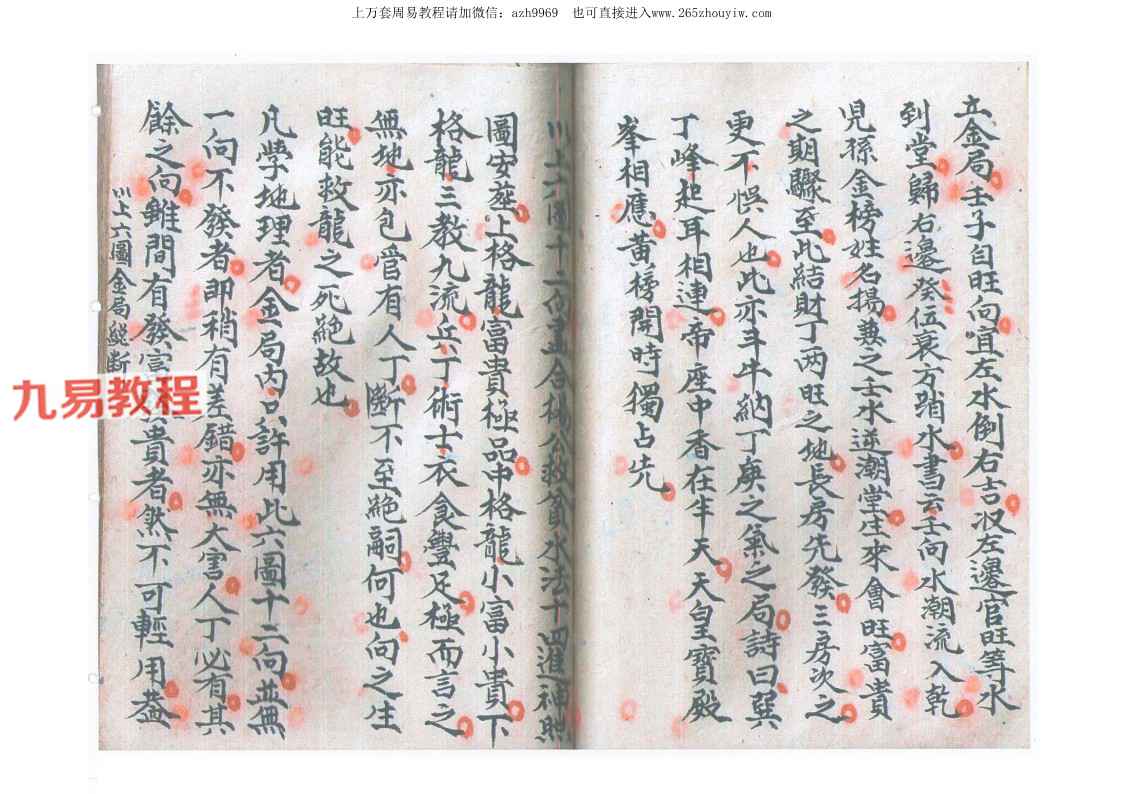 上万套周易教程请加微信：azh9969　也可直接进入www.265zhouyiw.com
立金局壬子自旺向宜左水倒右吉収左邊官旺等水
到堂歸右邊癸位衰方消水書云壬向水潮流入乾
児孫金榜姓名揚熟之壬水逆潮堂生來會旺富貴
之期驟至此結財丁两旺之地長房先發三房次之
更不悮人也此亦斗牛納丁庚之氣之局詩曰巽
丁峰起耳相連帝座中香在半天天皇寳殿
峯相應黄榜開時獨占先
川上六圖十二向並合楊公救貧水法十四進神照
圖安塟上格龍富貴極品中格龍小富小貴下
格龍三教九流兵丁術士衣食豐足極而言之
無地亦包管有人丁斷不至絕嗣何也向之生
旺能救龍之死絕故也
凡學地理者金局内只許用此六圖十二向並無
一向不發者即稍有差錯亦無大害人丁必有其
餘之向雖間有發富貴者然不可輕用葢
川上六圖金局総断
九易教程